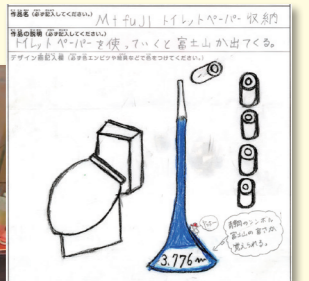 作品名（必ず記入してください。） Mtfuji トイレットペーパー 収納
作品の説明（必ず記入してください。）
トイレットペーパーを使っていくと富士山が出てくる。
デザイン画記入欄（必ず色エンピツや絵具などで色をつけてください。）
3.776m
静岡のシンボル
富士山の高さが
覚えられる。